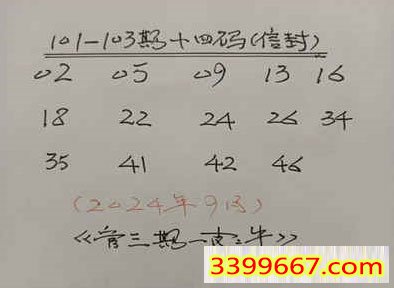 101-103期十四码(信封)
02 05 09 13 16
18 22 24 26 34
35 41 42 46
(2024年9月)
《管三期一支:牛》
3399667.com